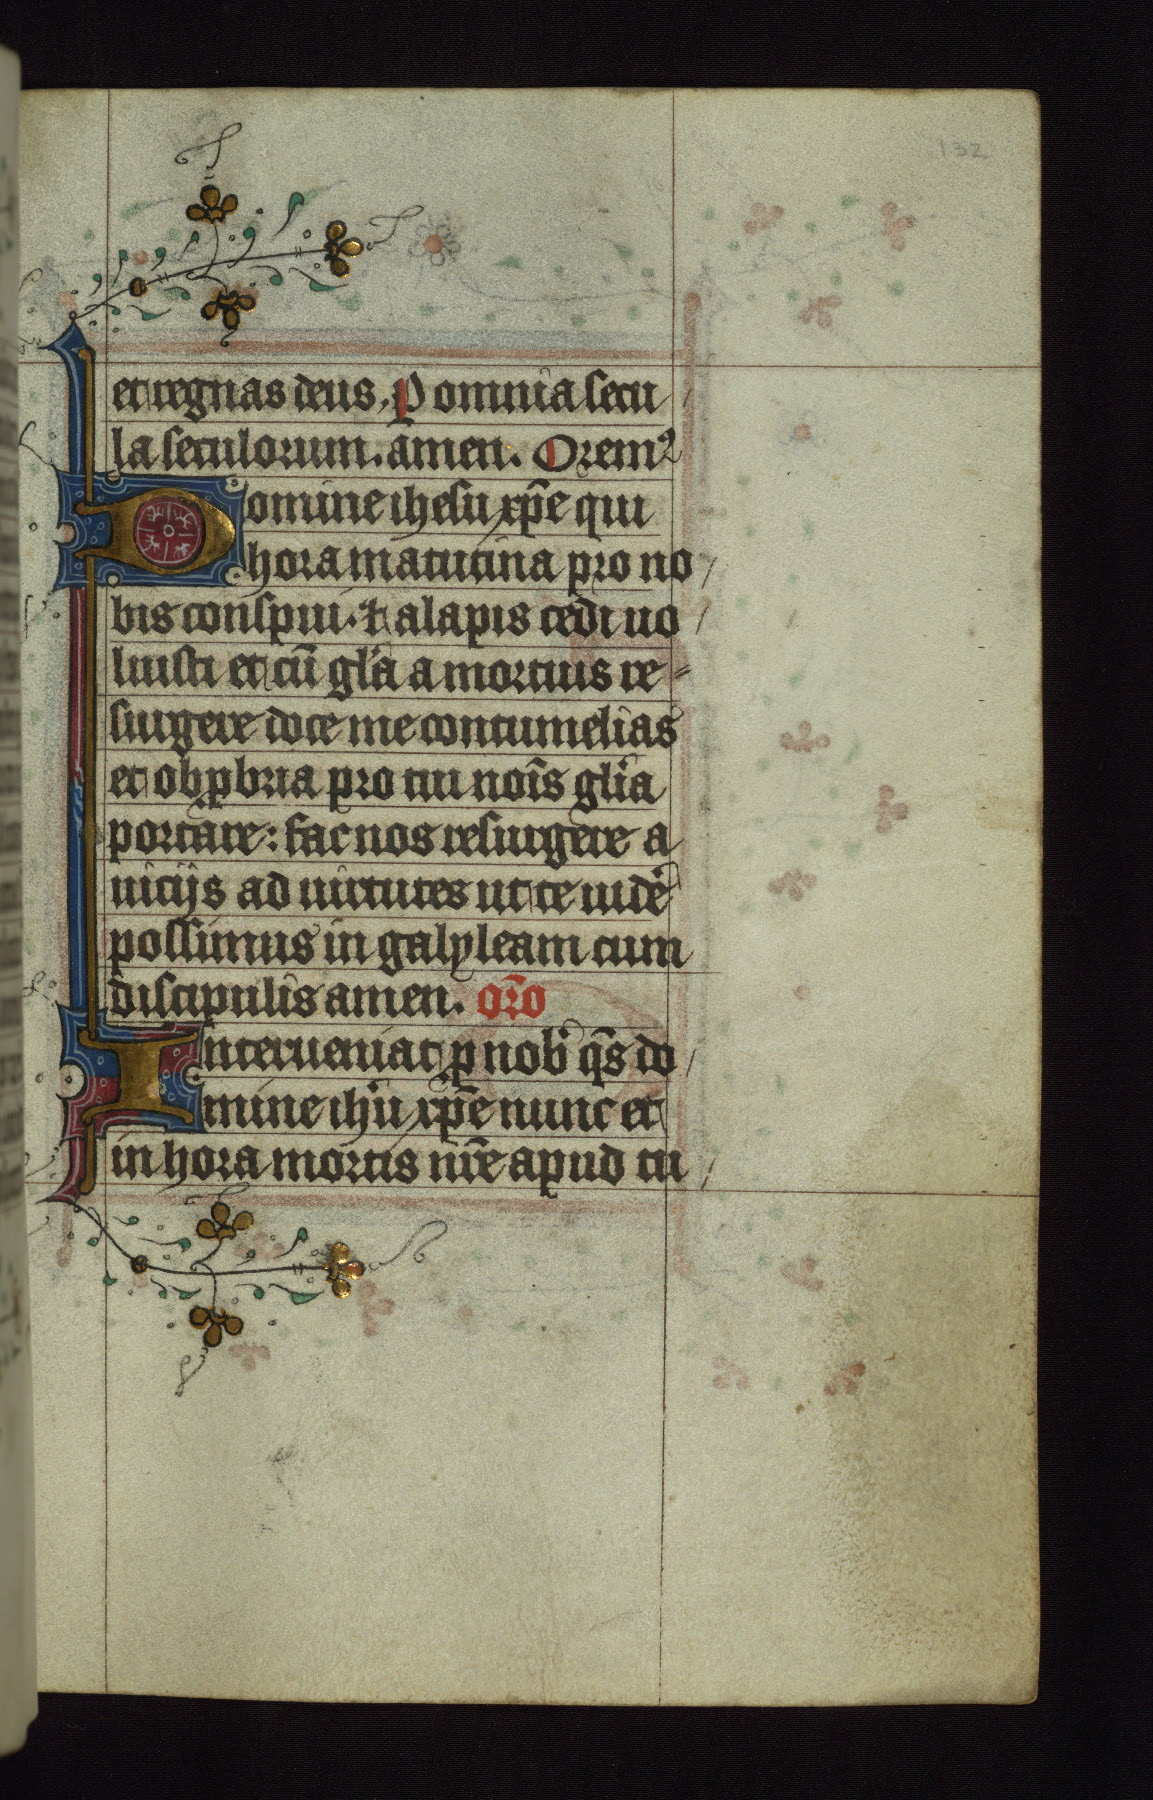 132
et regnas deus. P omnia secu
la seculorum. amen. Orem⁹
Domine ihesu xp̄e qui
hora matutina pro no
bis conspui. ⁊ alapis cedi uo
luisti et cū gl'a a mortuis re-
surgere doce me contumelias
et obꝓbria pro tui nōis gl'ia
portare: fac nos resurgere a
uicijs ad uirtutes ut te uidē
possimus in galyleam cum
discipulis amen. or̄o
Interueniat ꝓ nob' q̄s do
mine ihū xp̄e nunc et
in hora mortis nr̄e apud tu